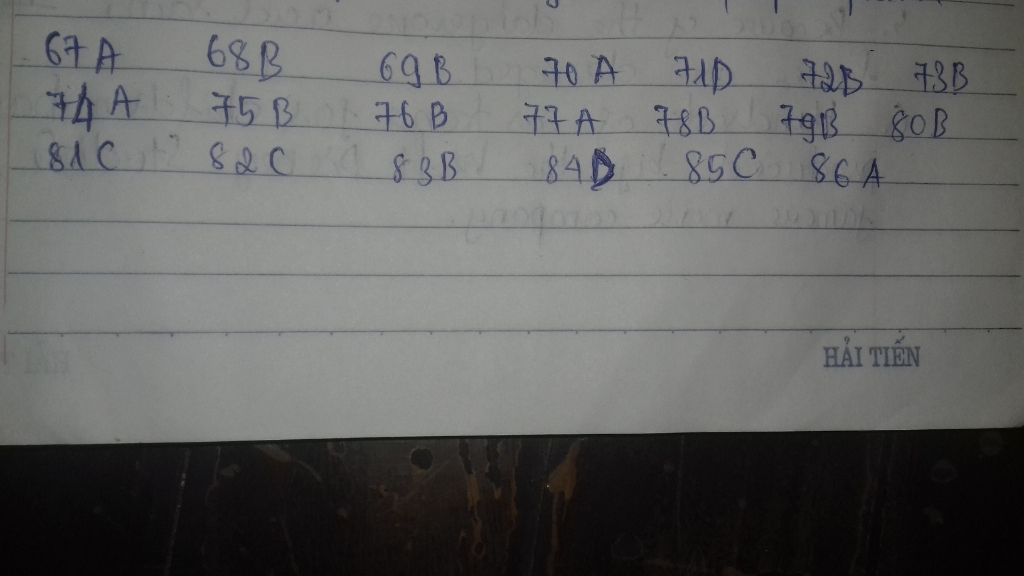 67A 68B 69B 70A 71D 72B 73B
74A 75B 76B 77A 78B 79B 80B
81C 82C 83B 84D 85C 86A
HẢI TIẾN